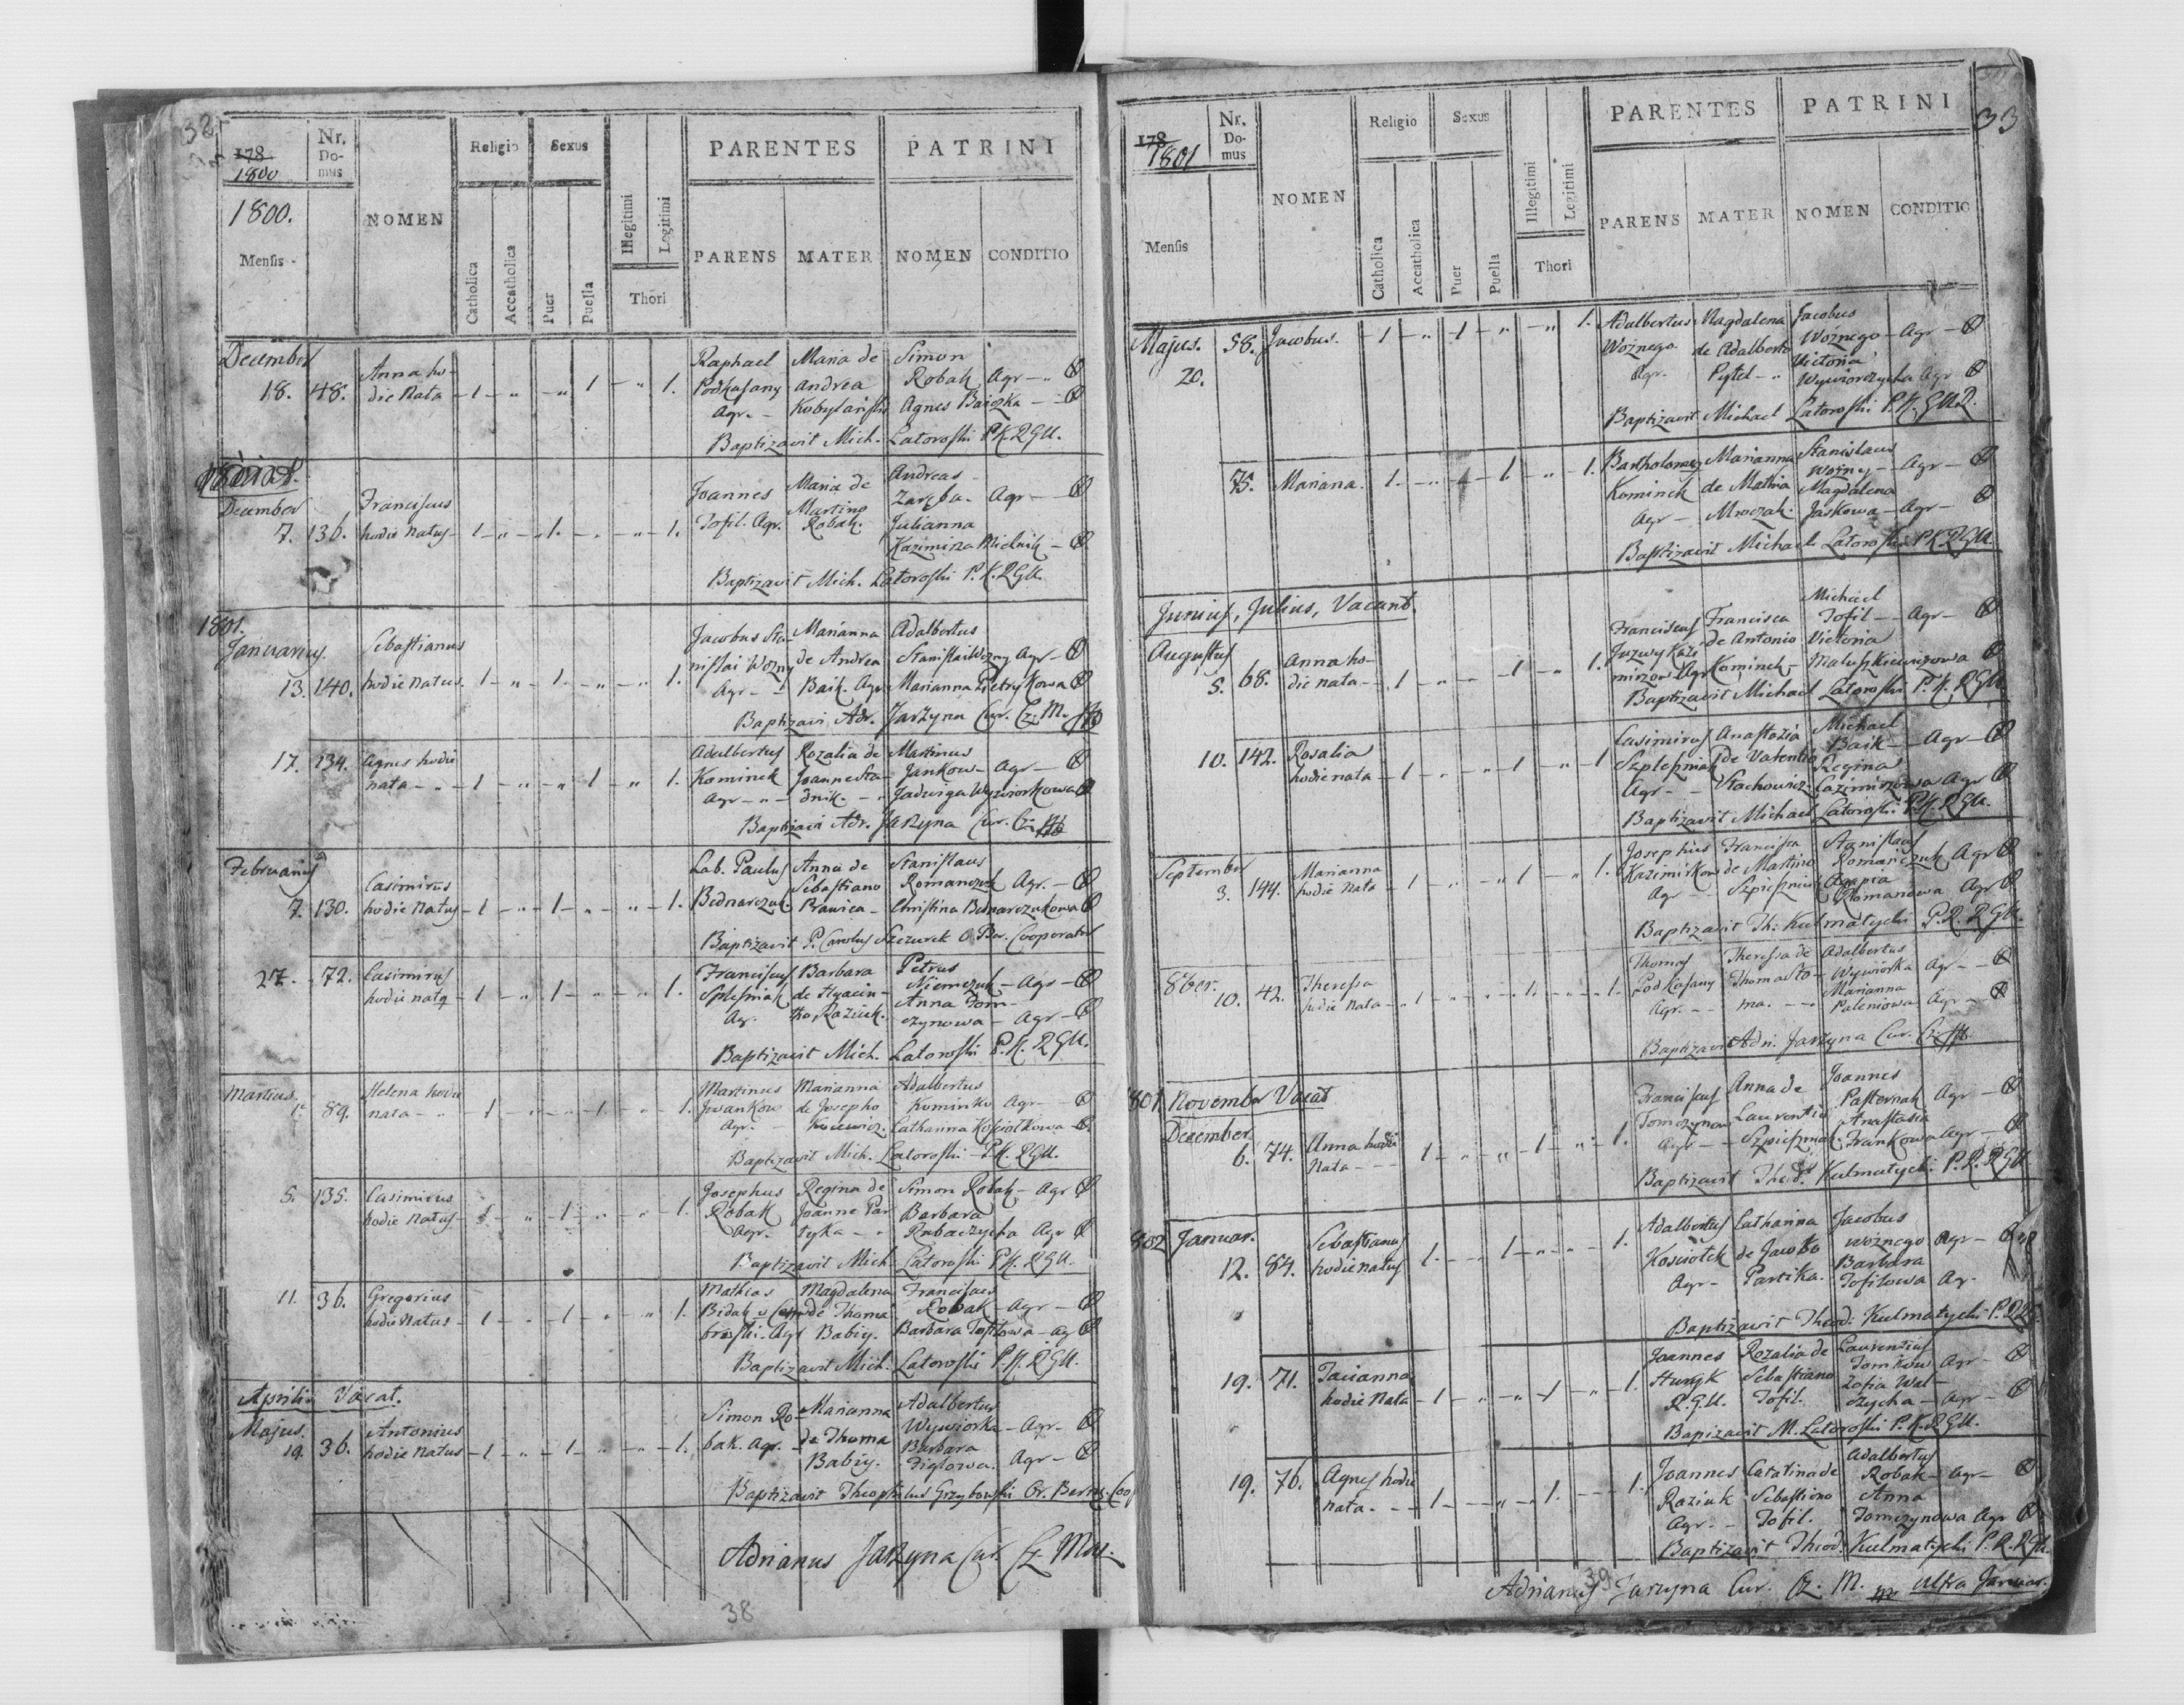 32
178
1800
Nr. Do- mus
NOMEN
Religio
Sexus
Illegitimi
Legitimi
PARENTES
PATRINI
1800.
Mensis
Catholica
Accatholica
Puer
Puella
Thori
PARENS
MATER
NOMEN
CONDITIO
December
18. 48. Anna ho-
die Nata - 1 - „ - „ 1 - „ 1.
Raphael Maria de Simon
Podkasany Andrea Robak Agr
Agr. - Kobylański Agnes Baiczka
Baptizavit Mich. Latoroski P.K.RGU.
December
7. 130. Franciscus
hodie Natus - 1 - „ - 1. - „ - 1.
Joannes Maria de Andreas
Martino Zaręba - Agr
Tofil. Agr. Robak. Julianna
Kazimirza Mielnik
Baptizavit Mich. Latoroski P.K.RGU.
1801.
Januarius.
13. 140. Sebastianus
hodie Natus. 1 - „ - 1 - „ - „ 1.
Jacobus Sta- Marianna Adalbertus
nislai Wozny de Andrea Stanislai Wozny Agr
Agr - Baik. Agr Marianna Pietrykowa
Baptizavi Adr. Jarzyna Cur. Cz. M.
17. 134. Agnes hodie
nata - „ - 1 - „ - „ 1 - „ 1.
Adalbertus Rozalia de Martinus
Kominek Joanne Sta- Jankow - Agr
Agr - „ - dnik. - „ Jadwiga Wywiorkowa
Baptizavi Adr. Jarzyna Cur. Cz.
Februarius
7. 130. Casimirus
hodie Natus - 1 - „ - 1 - „ - „ - 1.
Lab. Paulus Anna de Stanislaus
Sebastiano Romanczuk Agr.
Bednarczuk. Prawica - Christina Bednarczukowa
Baptizavit P. Carolus Szczurek O. Ber. Cooperator
27. 72. Casimirus
hodie natq - 1 - „ - 1 - „ - „ 1.
Franciscus Barbara Petrus
Splesniak de Hyacin- Niemczuk - Agr
Ag. tho Raziuk. Anna Tom-
czynowa - Agr
Baptizavit Mich. Latoroski P.K. RGU.
Martius.
1. 89. Helena hodie
nata - „ - 1 - „ - „ - 1 - „ 1.
Martinus Marianna Adalbertus
Jwankow de Josepho Kominko Agr
Agr. - Catharina Kosiolkowa
Baptizavit Mich. Latoroski P.K. RGU.
5. 135. Casimirus
hodie Natus - 1 - „ - 1 - „ - „ 1.
Josephus Regina de Simon Robak - Agr
Robak Joanne Par- Barbara
Agr. tyka - „ Rubaczycha Agr
Baptizavit Mich. Latoroski P.K. RGU.
11. 36. Gregorius
hodie Natus - 1 - „ - 1 - „ - „ 1.
Mathias Magdalena Franciscus
de Thoma Robak - Agr
Agr Babiy. Barbara Tofilowa - ag
Baptizavit Mich. Latoroski P.K. RGU.
Aprilis Vacat.
Majus.
19. 36. Antonius
hodie Natus - 1 - „ - 1 - „ - „ - 1.
Simon Ro- Marianna Adalbertus
bak. Agr. - de Thoma Wywiorka - Agr.
Babiy. Barbara
Figlowa. Agr
Baptizavit Theophilus Grzybowski Or. Bern. Coo
Adrianus Jarzyna Cur. Cz. Mas.
38
33
178
1801
Nr. Do- mus
NOMEN
Religio
Sexus
Illegitimi
Legitimi
PARENTES
PATRINI
Mensis
Catholica
Accatholica
Puer
Puella
Thori
PARENS
MATER
NOMEN
CONDITIO
Majus. 58. Jacobus. - 1 - „ - 1 - „ - „ 1.
20.
Adalbertus Magdalena Jacobus
Woznego de Adalberto Woznego - Agr
Agr. Pytel - „ Victoria
Wywiorczycha Agr
Baptizavit Michael Latoroski P.K. GUR.
75. Mariana. 1. - „ - 1 - „ - 1.
Bartholomey Marianna Stanislaus
Kominek de Mathia Wozny - Agr
Agr - Mroczak. Magdalena
Jaskowa - Agr
Baptizavit Michael Latoroski P.K.RGU.
Junius, Julius, Vacant.
Augustus
5. 68. Anna ho-
die nata - 1 - „ - „ - 1 - „ 1.
Franciscus Francisca Michael
Juzwy Kazi- de Antonio Tofil - Agr
mirzow Agr Kominek - Victoria
Maluszkiewiczowa
Baptizavit Michael Latoroski P.K. RGU.
10. 142. Rosalia
hodie nata - 1 - „ - „ - 1 - „ - 1
Casimirus Anastazia Michael
Szplesniak de Valentio Baik - Agr
Agr - Stachowicz. Regina
Cazimirzowa Agr
Baptizavit Michael Latoroski P.K. RGU.
September
3. 144. Marianna
hodie Nata - 1 - „ - „ 1 - „ - 1.
Josephus Francisca Stanislaus
Kazimirkow de Martino Romańczuk Agr
Agr - Agapia
Romanowa Agr
Baptizavit Th: Kulmatycki P.R. RGU.
8ber.
10. 42. Theressa
hodie Nata - „ 1 - „ - „ - 1. - „ - 1.
Thomas Theressa de Adalbertus
Podkasany Thoma Sto- Wywiorka Agr
Agr. - ma. - Marianna
Paleniowa Agr
Baptizavit Adri. Jarzyna Cur. Cz.
801 November Vacat
December
6. 74. Anna hodie
Nata - - - 1 - „ - „ - 1 - „ - 1.
Franciscus Anna de Joannes
Tomczynow Laurentio Pasternak Agr
Agr - Szpieszniak. Anastasia
Frankowa Agr
Baptizavit Theod. Kulmatycki P.R. RGU
802 Januar.
12. 84. Sebastianus
hodie natus 1. - „ - 1 - „ - „ - 1.
Adalbertus Catharina Jacobus
Kosciolek de Jacobo woznego Agr
Agr - Partika. Barbara
Tofilowa Ag.
Baptizavit Theod. Kulmatycki P.R.
19. 71.
hodie Nata - 1 - „ - „ - 1 - „ - 1.
Joannes Rozalia de Laurentius
Sebastiano Tomkow Agr
R.G.U. Tofil. Zofia Wal-
czycha - Agr
Bapizavit M. Latoroski P.K.RGU.
19. 76. Agnes hodie
nata. - - 1 - - „ - 1. - - - 1.
Joannes Catatina de Adalbertus
Raziuk Sebastiono Robak - Agr
Agr. - Tofil. Anna
Tomczynowa Agr
Baptizavit Theod. Kulmatycki P.R.RGU.
39
Adrianus Jarzyna Cur. Cz. M. Ultra Januar.